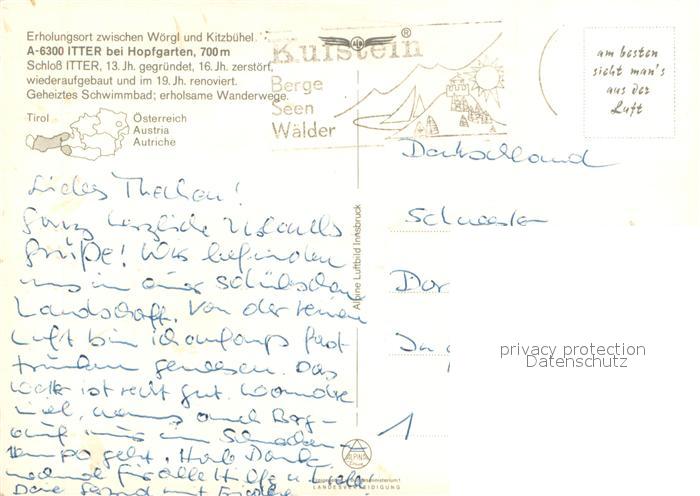 Erholungsort zwischen Wörgl und Kitzbühel.
A-6300 ITTER bei Hopfgarten, 700 m
Schloß ITTER, 13. Jh. gegründet, 16. Jh. zerstört,
wiederaufgebaut und im 19. Jh. renoviert.
Geheiztes Schwimmbad; erholsame Wanderwege.
Tirol
Österreich
Austria
Autriche
Kufstein
Berge
Seen
Wälder
am besten
sieht man's
aus der
Luft
Alpine Luftbild Innsbruck
Deutschland
Schwester
Dor
1
privacy protection
Datenschutz
Liebes
Ganz herzliche Urlaubs
grüße! Wir befinden
uns in einer schönen
Landschaft. Von der reinen
Luft bin ich anfangs fast
trunken gewesen. Das
Wetter ist recht gut. Wandere
viel, wenns auch Berg-
auf nur im Schnecken-
tempo geht. Herzl. Dank
nochmal für alle Hilfe u.
ALPINE
LANDESVERTEIDIGUNG